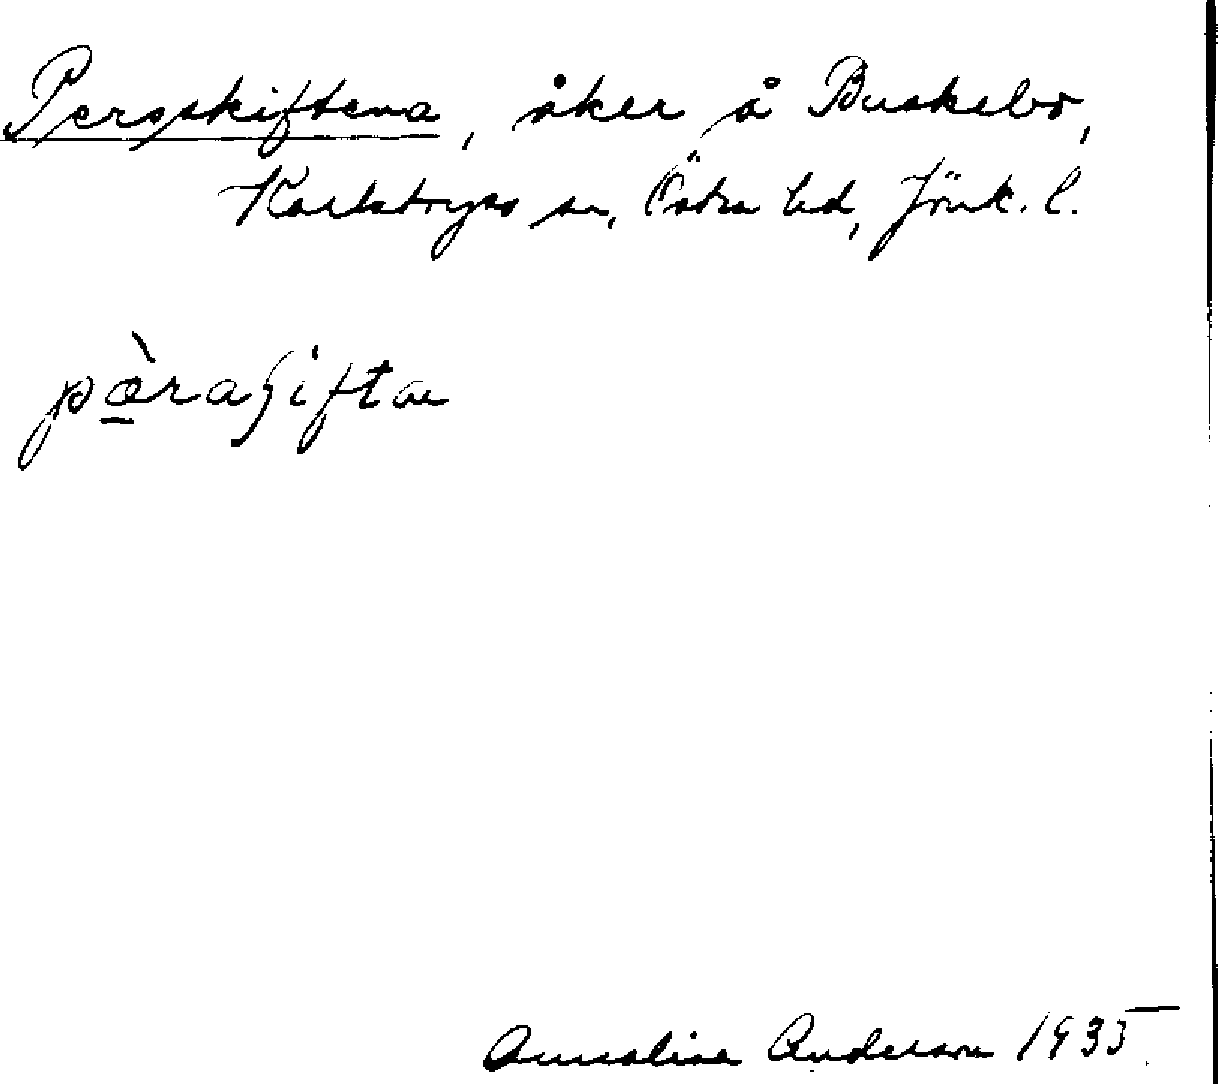 Persskiftena, åker å Buskebo,
Karlstorps sn, Östra hd, Jönk. l.
pæ̀raʃiftæ
Annalisa Anderson 1935.